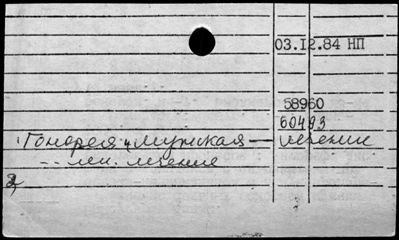 03.12.84 НП
58960
60493
Гонорея мужская — лечение
-- леч. лечение
2